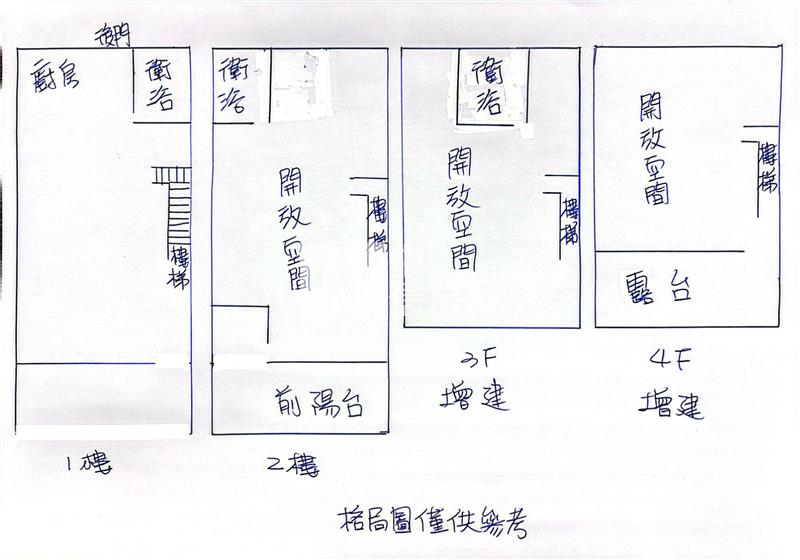 後門
廚房
衛浴
樓梯
1樓
衛浴
開放空間
樓梯
前陽台
2樓
衛浴
開放空間
樓梯
3F
增建
開放空間
樓梯
露台
4F
增建
格局圖僅供參考